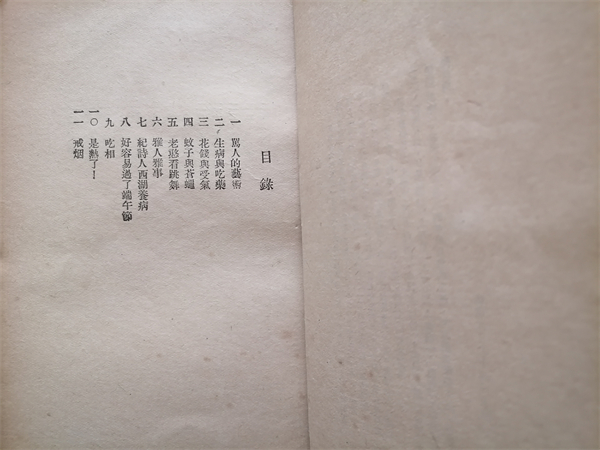 目錄
一 罵人的藝術
二 生病與吃藥
三 花錢與受氣
四 蚊子與蒼蠅
五 老憨看跳舞
六 雅人雅事
七 紀詩人西湖養病
八 好容易過了端午節
九 吃相
一〇 是熱了！
一一 戒烟